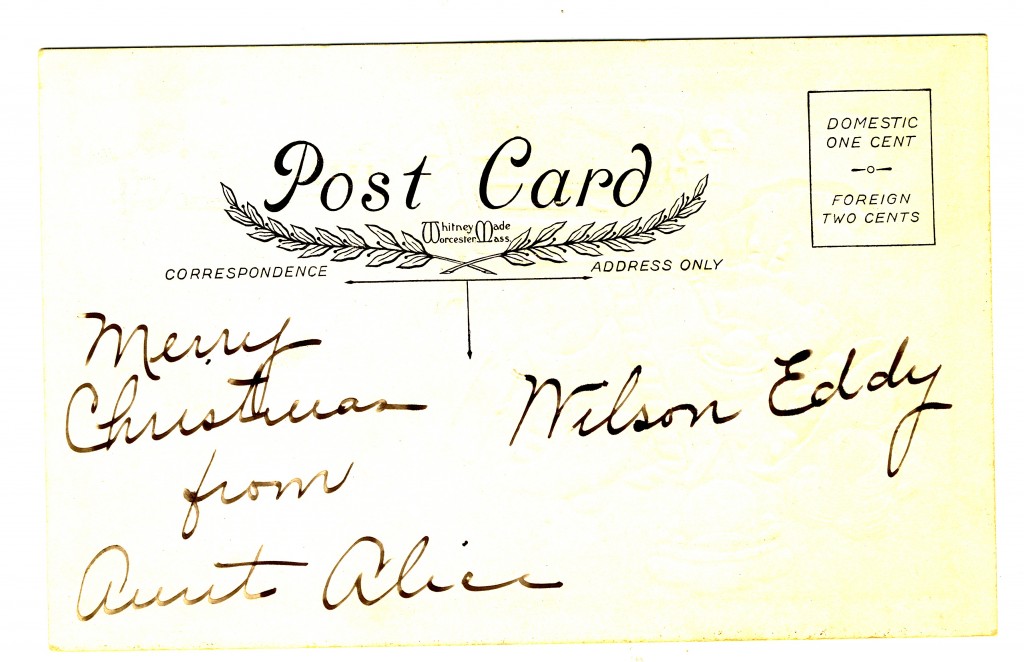 Post Card
Whitney Made
Worcester Mass.
CORRESPONDENCE
ADDRESS ONLY
DOMESTIC
ONE CENT
FOREIGN
TWO CENTS
Merry
Christmas
from
Aunt Alice
Wilson Eddy